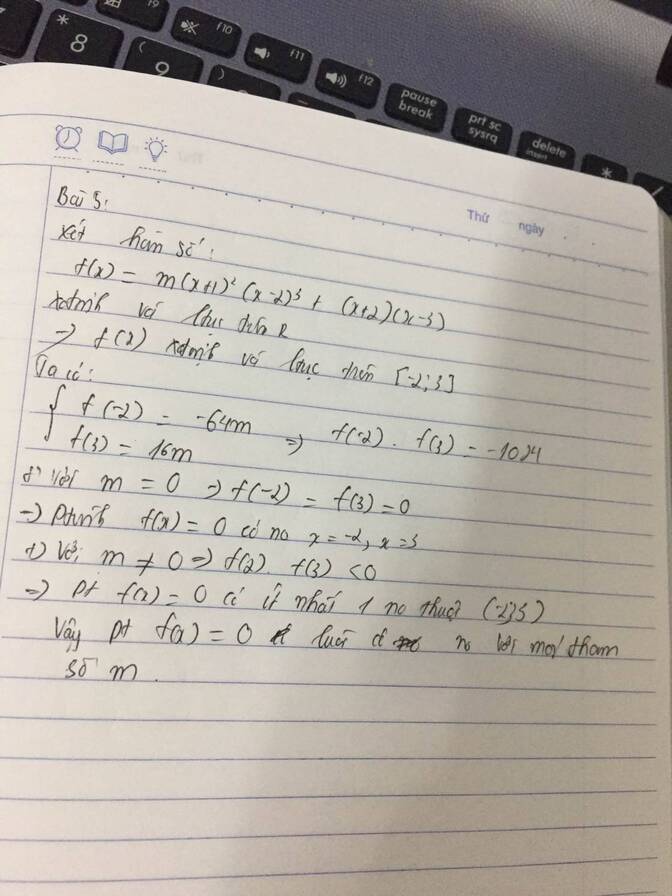 f9
f10
f11
f12
*
8
(
9
)
pause
break
prt sc
sysrq
delete
insert
*
/
Thứ ngày
Bài 5:
xét hàm số:
f(x) = m(x+1)² (x-2)³ + (x+2)(x-3)
xđịnh và liên R
→ f(x) xđịnh và trên [-2;3]
Ta có:
{ f(-2) = -64m
f(3) = 16m ⇒ f(-2) . f(3) = -1024
+) Với m = 0 ⇒ f(-2) = f(3) = 0
→ f(x) = 0 có no x = -2, x = 3
+) Với m ≠ 0 ⇒ f(2) . f(3) < 0
⇒ pt f(x) = 0 có ít nhất 1 no thuộc (-2;3)
Vậy pt f(x) = 0 luôn có no với mọi tham
số m.